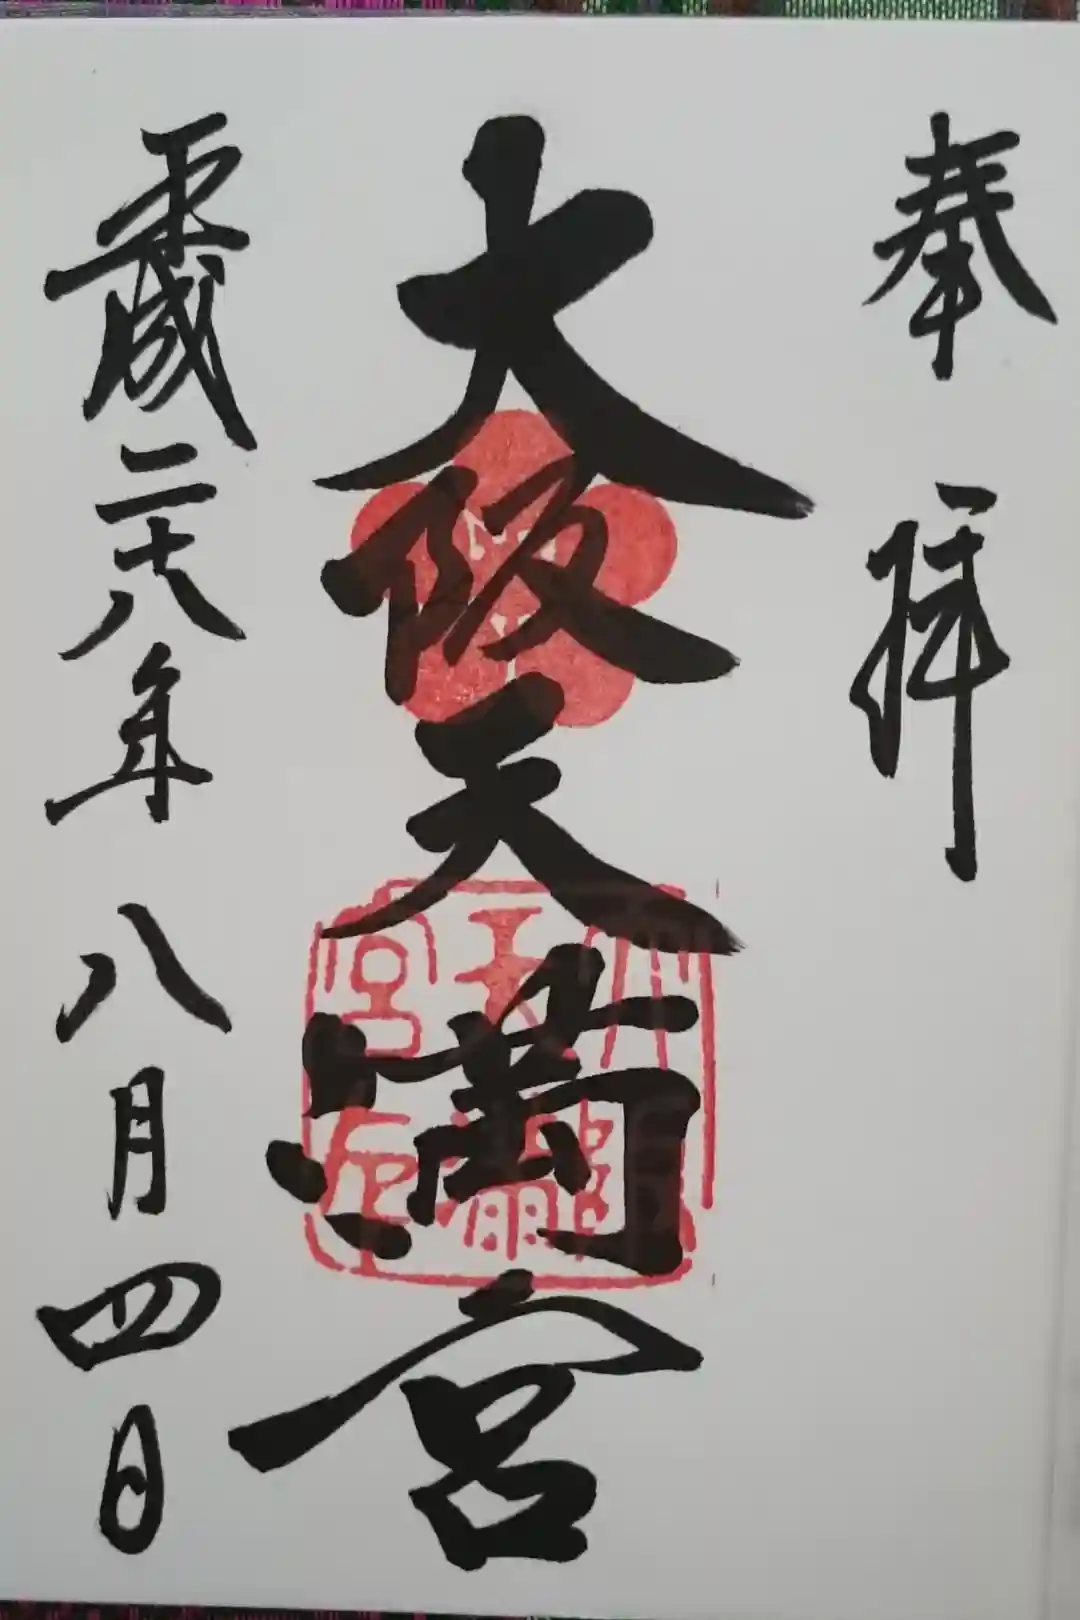 奉拝
大阪天満宮
平成二十八年八月四日